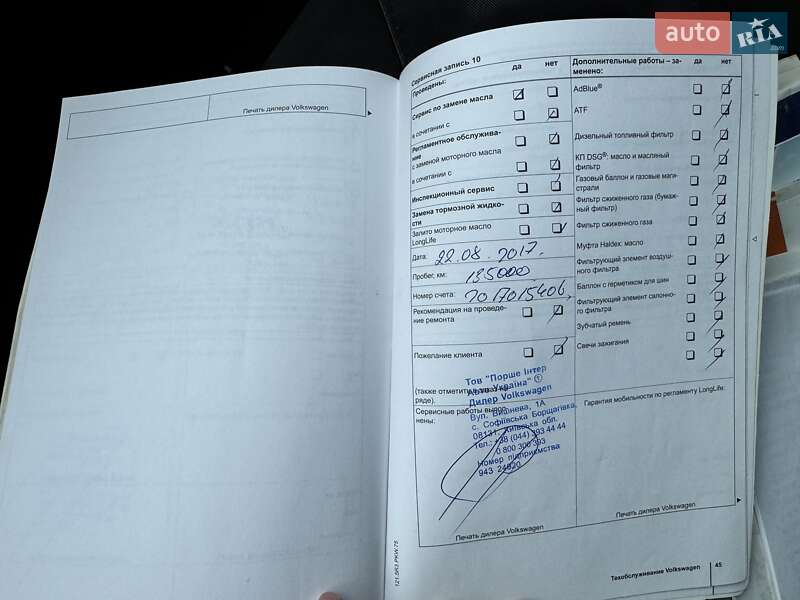 auto
RIA
.com
Печать дилера Volkswagen
Сервисная запись 10
Проведены:
да
нет
Сервис по замене масла
в сочетании с
Регламентное обслужива-
ние
с заменой моторного масла
в сочетании с
Инспекционный сервис
Замена тормозной жидко-
сти
Залито моторное масло
LongLife
Дата:
22.08.2017.
Пробег, км:
135000
Номер счета:
2017015406
Рекомендация на проведе-
ние ремонта
Пожелание клиента
(также отметить в
ряде).
Сервисные работы выпол-
нены:
Тов "Порше Інтер
Авто Україна" 1
Дилер Volkswagen
Вул. Вишнева, 1А
с. Софіївська Борщагівка,
08131, Київська обл.
Тел.: +38 (044) 393 44 44
0 800 300 393
Номер підприємства
943 24920
Печать дилера Volkswagen
Дополнительные работы – за-
менено:
да
нет
AdBlue®
ATF
Дизельный топливный фильтр
КП DSG®: масло и масляный
фильтр
Газовый баллон и газовые маги-
страли
Фильтр сжиженного газа (бумаж-
ный фильтр)
Фильтр сжиженного газа
Муфта Haldex: масло
Фильтрующий элемент воздуш-
ного фильтра
Баллон с герметиком для шин
Фильтрующий элемент салонно-
го фильтра
Зубчатый ремень
Свечи зажигания
Гарантия мобильности по регламенту LongLife:
Печать дилера Volkswagen
121.5R3.PKW.75
Техобслуживание Volkswagen
45